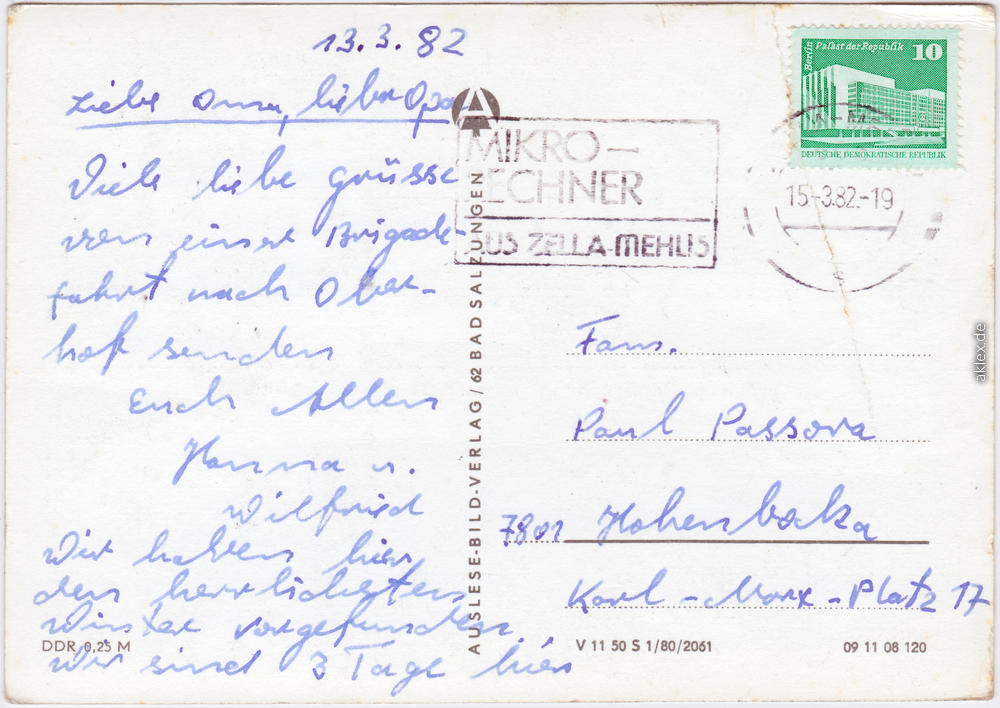 13.3.82
Liebe Oma, lieber Opa
Viele liebe grüsse
von einer Brigade-
fahrt nach Ober-
hof senden
Euch Allen
Hanna u.
Wilfried
Wir haben hier
den herrlichsten
Winter vorgefunden.
Wir sind 3 Tage hier
DDR 0,25 M
AUSLESE-BILD-VERLAG / 62 BAD SALZUNGEN
MIKRO-
RECHNER
AUS ZELLA-MEHLIS
Berlin Palast der Republik 10
DEUTSCHE DEMOKRATISCHE REPUBLIK
15.-3.82.-19
s
Fam.
Paul Passora
7801 Hohenbocka
Karl-Marx-Platz 17
V 11 50 S 1/80/2061
09 11 08 120
aklex.de